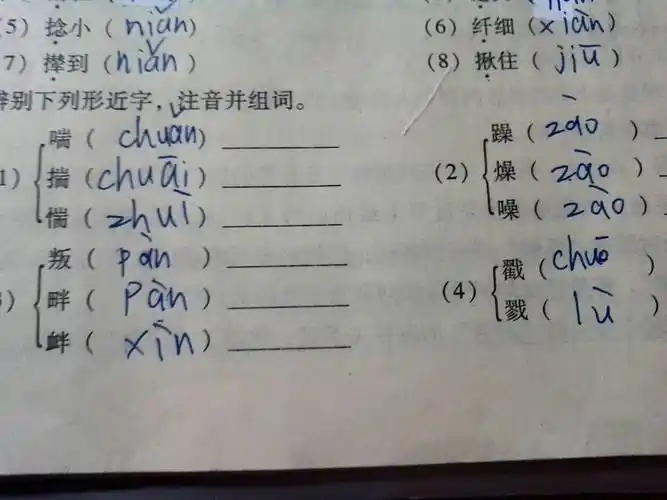 5) 捻小 ( niǎn) (6) 纤细 (xiàn)
7) 撵到 (niǎn ) (8) 揪住 ( jiū )
辨别下列形近字，注音并组词。
喘 ( chuǎn) 躁 ( zào )
1) 揣 (chuāi) (2) 燥 ( zào )
惴 ( zhuì) 噪 ( zào )
叛 ( pàn ) 戳 (chuō )
3) 畔 ( pàn ) (4) 戮 ( lù )
衅 ( xìn )